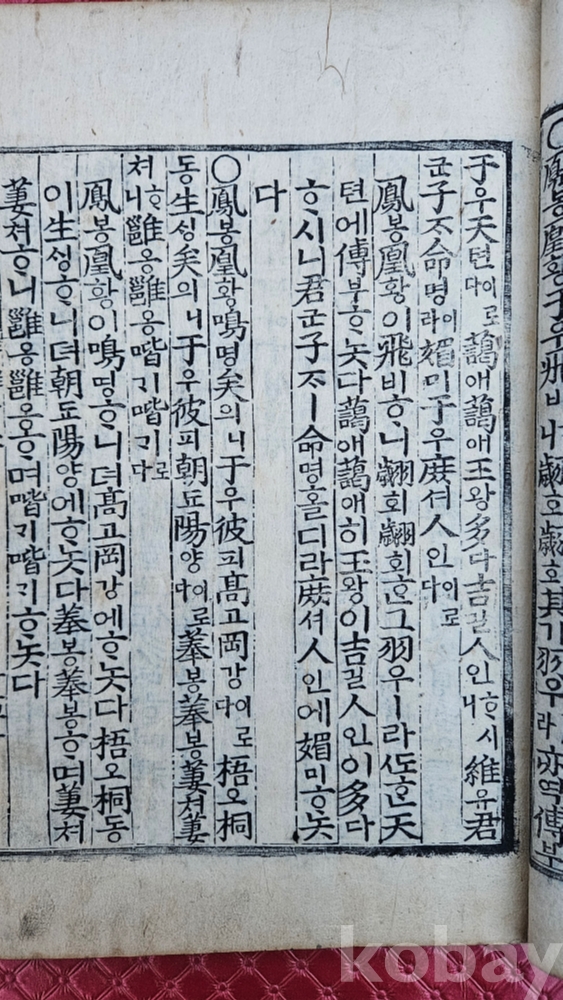 ○鳳봉凰황于우飛비니翽회翽회其기羽우라亦역傅부
于우天텬이로다藹애藹애王왕多다吉길人인ᄒᆞ시니維유君
군子ᄌᆞ命명이라媚미于우庶셔人인이로다
鳳봉凰황이飛비ᄒᆞ니翽회翽회ᄒᆞᆫ그羽우ㅣ라ᄯᅩᄒᆞᆫ天
텬에傅부ᄒᆞ놋다藹애藹애히王왕이吉길人인이多다
ᄒᆞ시니君군子ᄌᆞㅣ命명올디라庶셔人인에媚미ᄒᆞ놋
다
○鳳봉凰황鳴명矣의니于우彼피高고岡강이로다梧오桐
동生ᄉᆡᆼ矣의니于우彼피朝됴陽양이로다菶봉菶봉萋쳐萋
쳐ᄒᆞ니雝옹雝옹喈ᄀᆡ喈ᄀᆡ로다
鳳봉凰황이鳴명ᄒᆞ니뎌高고岡강에ᄒᆞ놋다梧오桐동
이生ᄉᆡᆼᄒᆞ니뎌朝됴陽양에ᄒᆞ놋다菶봉菶봉ᄒᆞ며萋쳐
萋쳐ᄒᆞ니雝옹雝옹ᄒᆞ며喈ᄀᆡ喈ᄀᆡᄒᆞ놋다
kobay